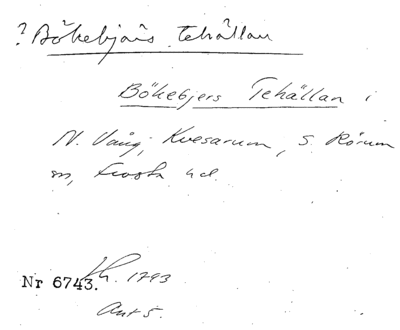 ? Bökebjärs tehällan
Bökebjers Tehällan i
N. Vång, Kvesarum, S. Rörum
sn, Frosta hd.
Nr 6743. Lh. 1793
Ant 5.